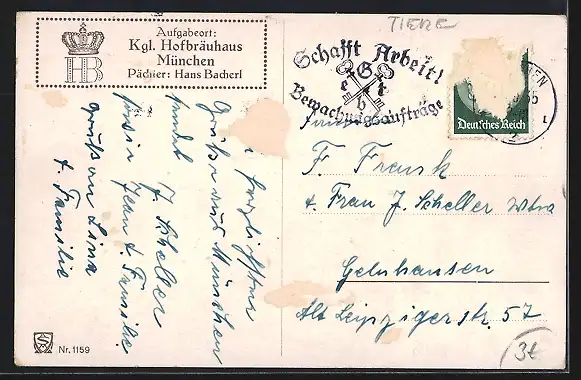 TIERE
Aufgabeort:
Kgl. Hofbräuhaus
München
Pächter: Hans Bacherl
HB
Schafft Arbeit!
Bewachungsaufträge
Deutsches Reich
herzlichsten
Grüße aus München
sendet J. Scheller
sowie Frau & Familie
Gruß an Lina
& Familie
F. Frank
& Frau J. Scheller Wtwe
Gelnhausen
Alt Leipzigerstr. 57
Nr. 1159
3t